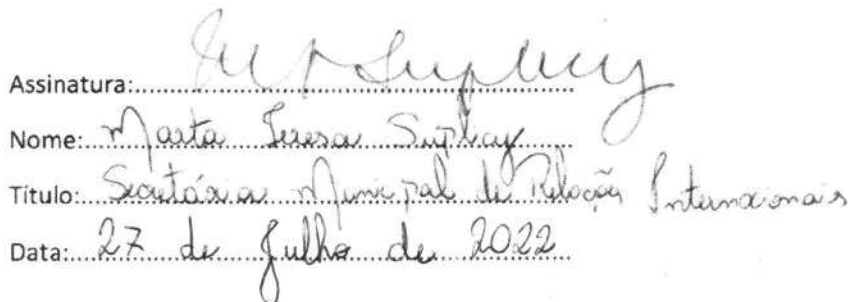 Assinatura: M Suplicy
Nome: Marta Teresa Suplicy
Título: Secretária Municipal de Relações Internacionais
Data: 27 de Julho de 2022